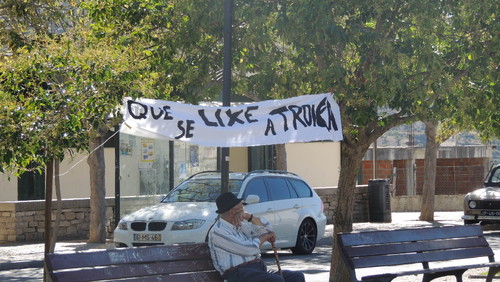 QUE SE LIKE A TROIKA